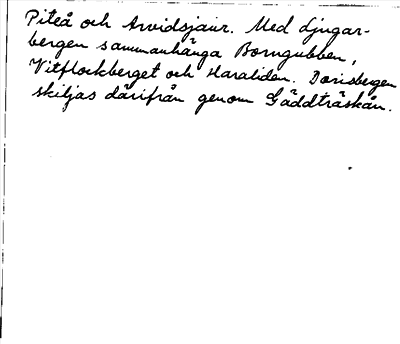 Piteå och Arvidsjaur. Med Ljugar-
bergen sammanhänga Borngubben,
Vitflockberget och Haraliden. Darisbergen
skiljas därifrån genom Gäddträskån.